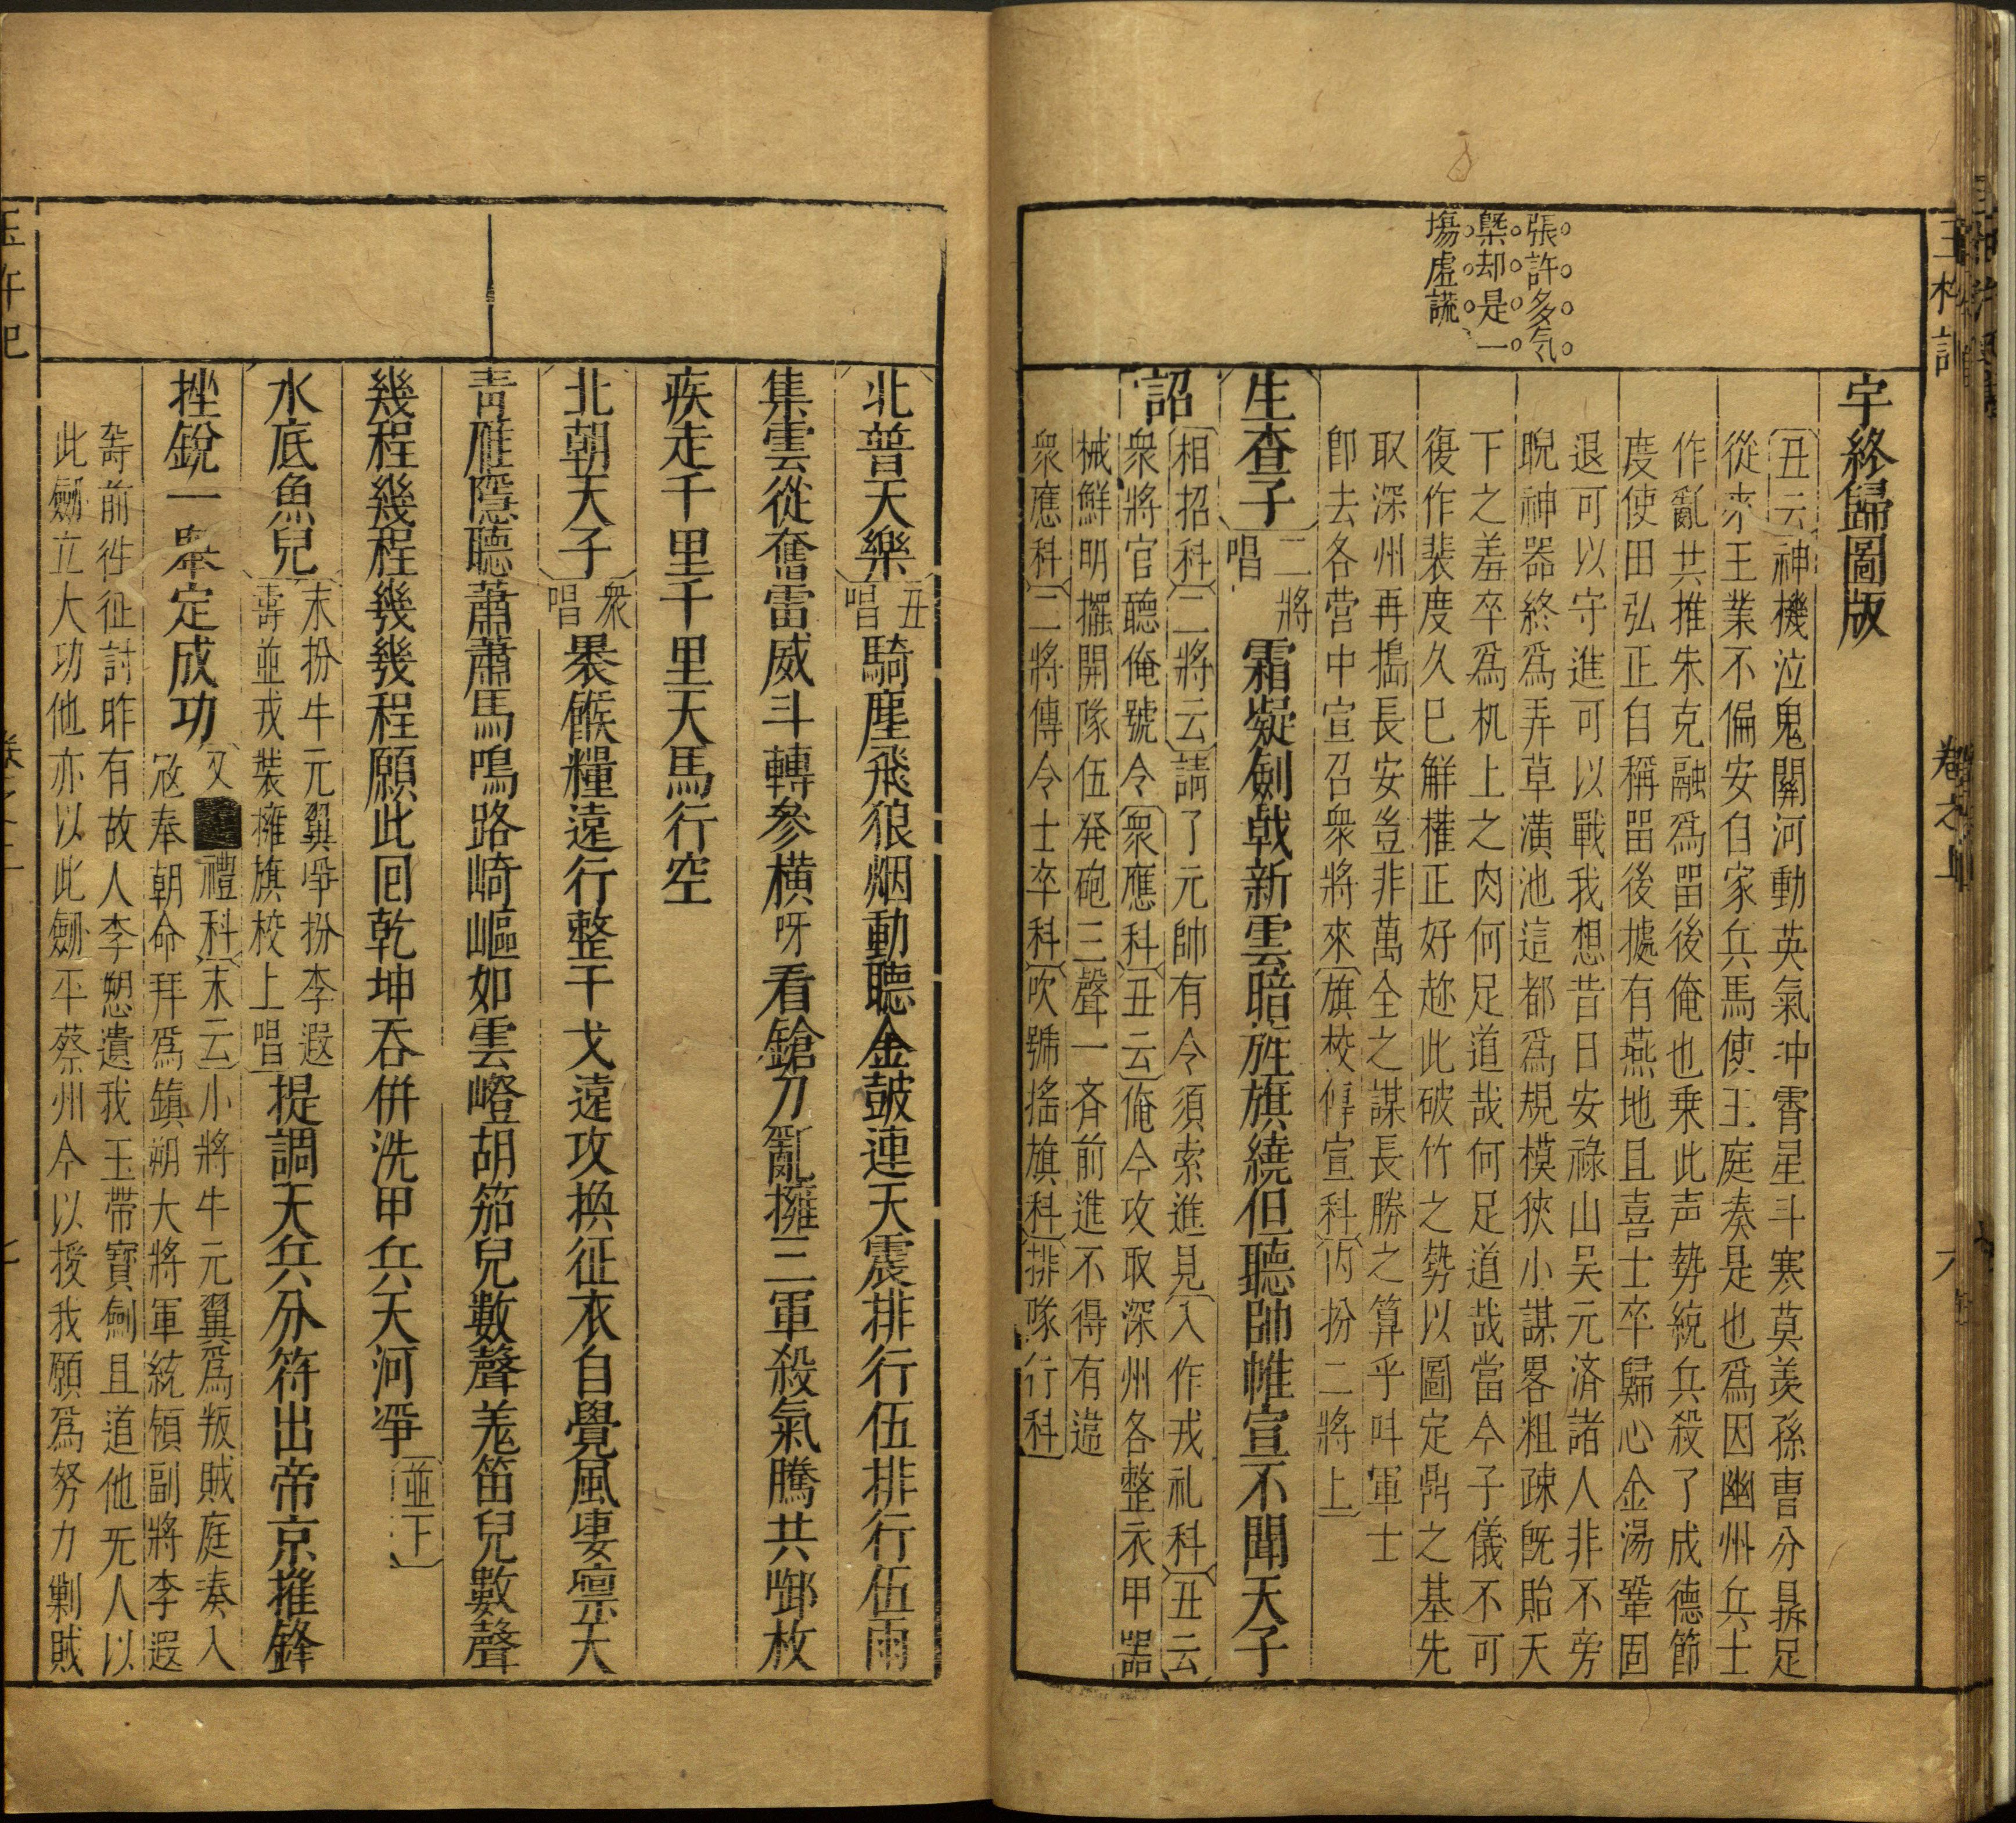 張許多氣
槩却是一
塲虛謊
宇終歸圖版
〔丑云〕神機泣鬼關河動英氣冲霄星斗寒莫羡孫曹分鼎足
從來王業不偏安自家兵馬使王庭奏是也爲因幽州兵士
作亂共推朱克融爲畱後俺也乗此声勢統兵殺了成德節
度使田弘正自稱畱後據有燕地且喜士卒歸心金湯鞏固
退可以守進可以戰我想昔日安祿山吴元済諸人非不旁
睨神器終爲弄草潢池這都爲規模狹小謀畧粗疎旣貽天
下之羞卒爲机上之肉何足道哉何足道哉當今子儀不可
復作裴度久已觧權正好趂此破竹之勢以圖定鼎之基先
取深州再搗長安豈非萬全之謀長勝之算乎呌軍士
卽去各营中宣召衆將來〔旗校傳宣科〕〔㑹扮二將上〕
生查子〔二將唱〕霜凝劍戟新雲暗旌旗繞但聽帥帷宣不聞天子
詔
〔相招科〕〔二將云〕請了元帥有令須索進見〔入作戎礼科〕〔丑云〕
衆將官聽俺號令〔衆應科〕〔丑云〕俺今攻取深州各整衣甲噐
械鮮明擺開隊伍発砲三聲一斉前進不得有違
〔衆應科〕〔二將傳令士卒科〕〔吹號搖旗科〕〔排隊行科〕
北普天樂〔丑唱〕騎塵飛狼烟動聽金鼓連天震排行伍排行伍雨
集雲從奮雷威斗轉參横呀看鎗刀亂擁三軍殺氣騰共啣枚
疾走千里千里天馬行空
北朝天子〔衆唱〕褁餱糧遠行整干戈遠攻換征衣自覺風凄凛天
靑雁隱聽蕭蕭馬鳴路崎嶇如雲嶝胡笳兒數聲羗笛兒數聲
幾程幾程幾幾程願此囘乾坤吞併洗甲兵天河淨〔並下〕
水底魚兒〔末扮牛元翼淨扮李遐壽並戎裝擁旗校上唱〕提調天兵分符出帝京摧鋒
挫銳一舉定成功〔叉禮科〕〔末云〕小將牛元翼爲叛賊庭凑入
寇奉朝命拜爲鎮朔大將軍統領副將李遐
壽前徃征討昨有故人李愬遺我玉帶寶劍且道他旡人以
此劒立大功他亦以此劒平蔡州今以授我願爲努力剿賊